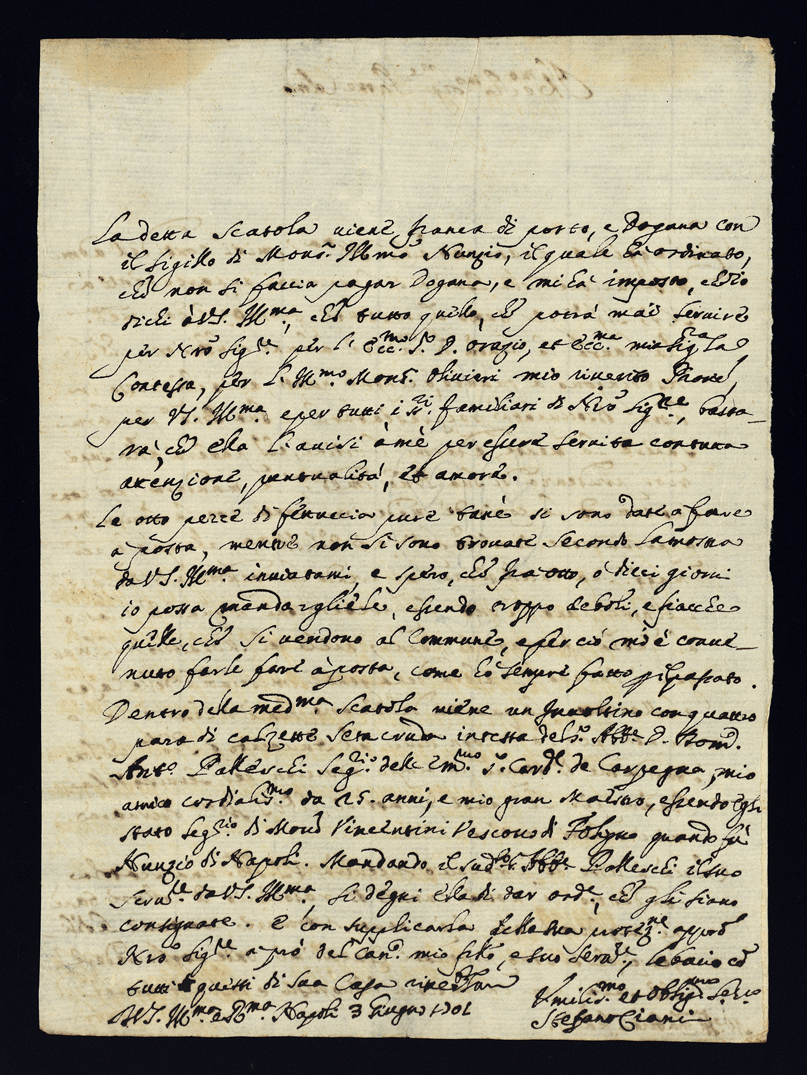 La detta Scatola viene franca di porto, e Dogana con
il sigillo di Mons.r Illmo Nunzio, il quale hà ordinato,
che non si faccia pagar Dogana, e mi hà imposto, ch'io
dichi à VS. Ill.ma, che tutto quello, che potrà mai servire
per Nrō Sig.re per l'Ecc.mo S.r D. Orazio, et Ecc.ma mia Sig.ra la
Contessa, per l'Ill.mo Mons.r Olivieri mio riverito Prone,
per VS. Ill.ma e per tutti i S.ri familiari di Nrō Sig.re, basta-
rà, che ella l'avisi à mè per essere servita con tutta
attenzione, puntualità, et amore.
Le otto pezze di fettuccia pure si sono date a fare
a posta, mentre non si sono trovate secondo la mostra
da VS. Ill.ma inviatami, e spero, che frà otto, ò dieci giorni
io possa mandargliele, essendo troppo deboli, e fiacche
quelle, che si vendono al Commune, e per ciò m'è conve-
nuto farle fare à posta, come hò sempre fatto pel passato.
Dentro della med.ma Scatola viene un involtino con quattro
para di calzette seta cruda intesta del S.r Abb.e D. Rom.o
Ant.o Palleschi Seg.rio dell'Em.mo S.r Card.l de Carpegna, mio
amico cordialis.mo da 25. anni, e mio gran Maestro, essendo Egli
stato Seg.rio di Mons.r Vincentini Vescovo di Foligno quando fù
Nunzio di Napoli. Mandando il sud.o S.r Abb.e Palleschi il suo
Serv.re da VS. Ill.ma, si degni ella di dar ord.e, che gli siano
consignate. E con supplicarla della sua protez.ne appò
Nrō Sig.re a prò del Can.co mio fillo, e suo Serv.re, le bacio cō
tutti questi di sua Casa
Di VS. Ill.ma e R.ma Napoli 3 Giugno 1701
Umilis.mo et Obblig.mo Ser.re
Stefano Ciani